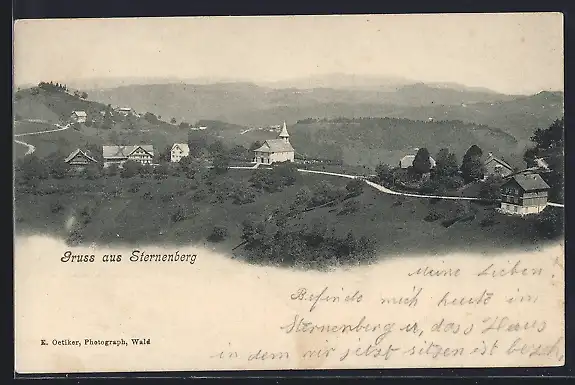 Gruss aus Sternenberg
Meine Lieben!
Befinde mich heute im
Sternenberg, das Haus
K. Oetiker, Photograph, Wald
in dem wir selbst sitzen ist